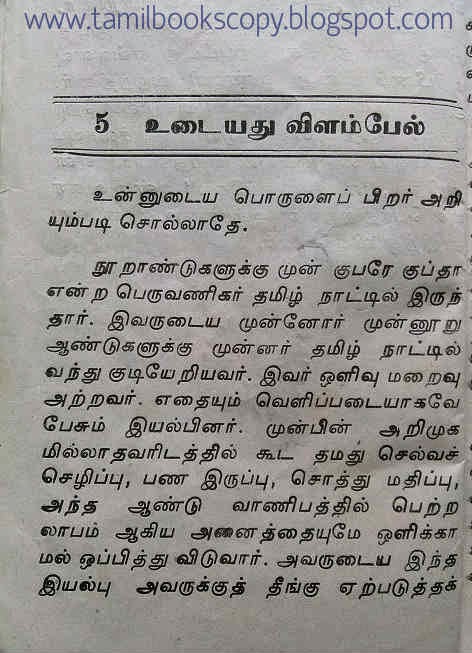 www.tamilbookscopy.blogspot.com
5 உடையது விளம்பேல்
உன்னுடைய பொருளைப் பிறர் அறி
யும்படி சொல்லாதே.
நூறாண்டுகளுக்கு முன் குபரே குப்தா
என்ற பெருவணிகர் தமிழ் நாட்டில் இருந்
தார். இவருடைய முன்னோர் முன்னூறு
ஆண்டுகளுக்கு முன்னர் தமிழ் நாட்டில்
வந்து குடியேறியவர். இவர் ஒளிவு மறைவு
அற்றவர். எதையும் வெளிப்படையாகவே
பேசும் இயல்பினர். முன்பின் அறிமுக
மில்லாதவரிடத்தில் கூட தமது செல்வச்
செழிப்பு, பண இருப்பு, சொத்து மதிப்பு,
அந்த ஆண்டு வாணிபத்தில் பெற்ற
லாபம் ஆகிய அனைத்தையுமே ஒளிக்கா
மல் ஒப்பித்து விடுவார். அவருடைய இந்த
இயல்பு அவருக்குத் தீங்கு ஏற்படுத்தக்